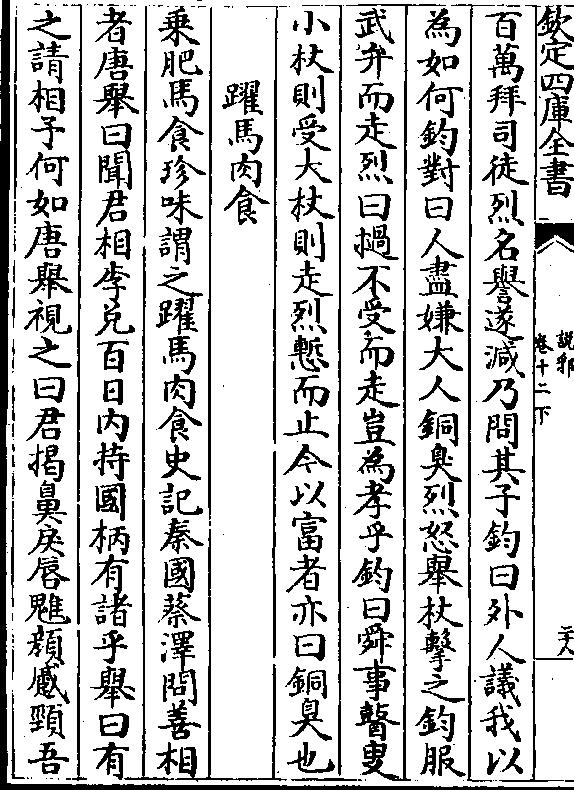 欽定四庫全書
說郛
卷十二下
二十八
百萬拜司徒烈名譽遂減乃問其子鈞曰外人議我以
為如何鈞對曰人盡嫌大人銅臭烈怒舉杖擊之鈞服
武弁而走烈曰撾不受而走豈為孝乎鈞曰舜事瞽叟
小杖則受大杖則走烈慙而止今以富者亦曰銅臭也
躍馬肉食
乘肥馬食珍味謂之躍馬肉食史記秦國蔡澤問善相
者唐舉曰聞君相李兌百日内持國柄有諸乎舉曰有
之請相子何如唐舉視之曰君揭鼻戾唇魋顔蹙頞吾